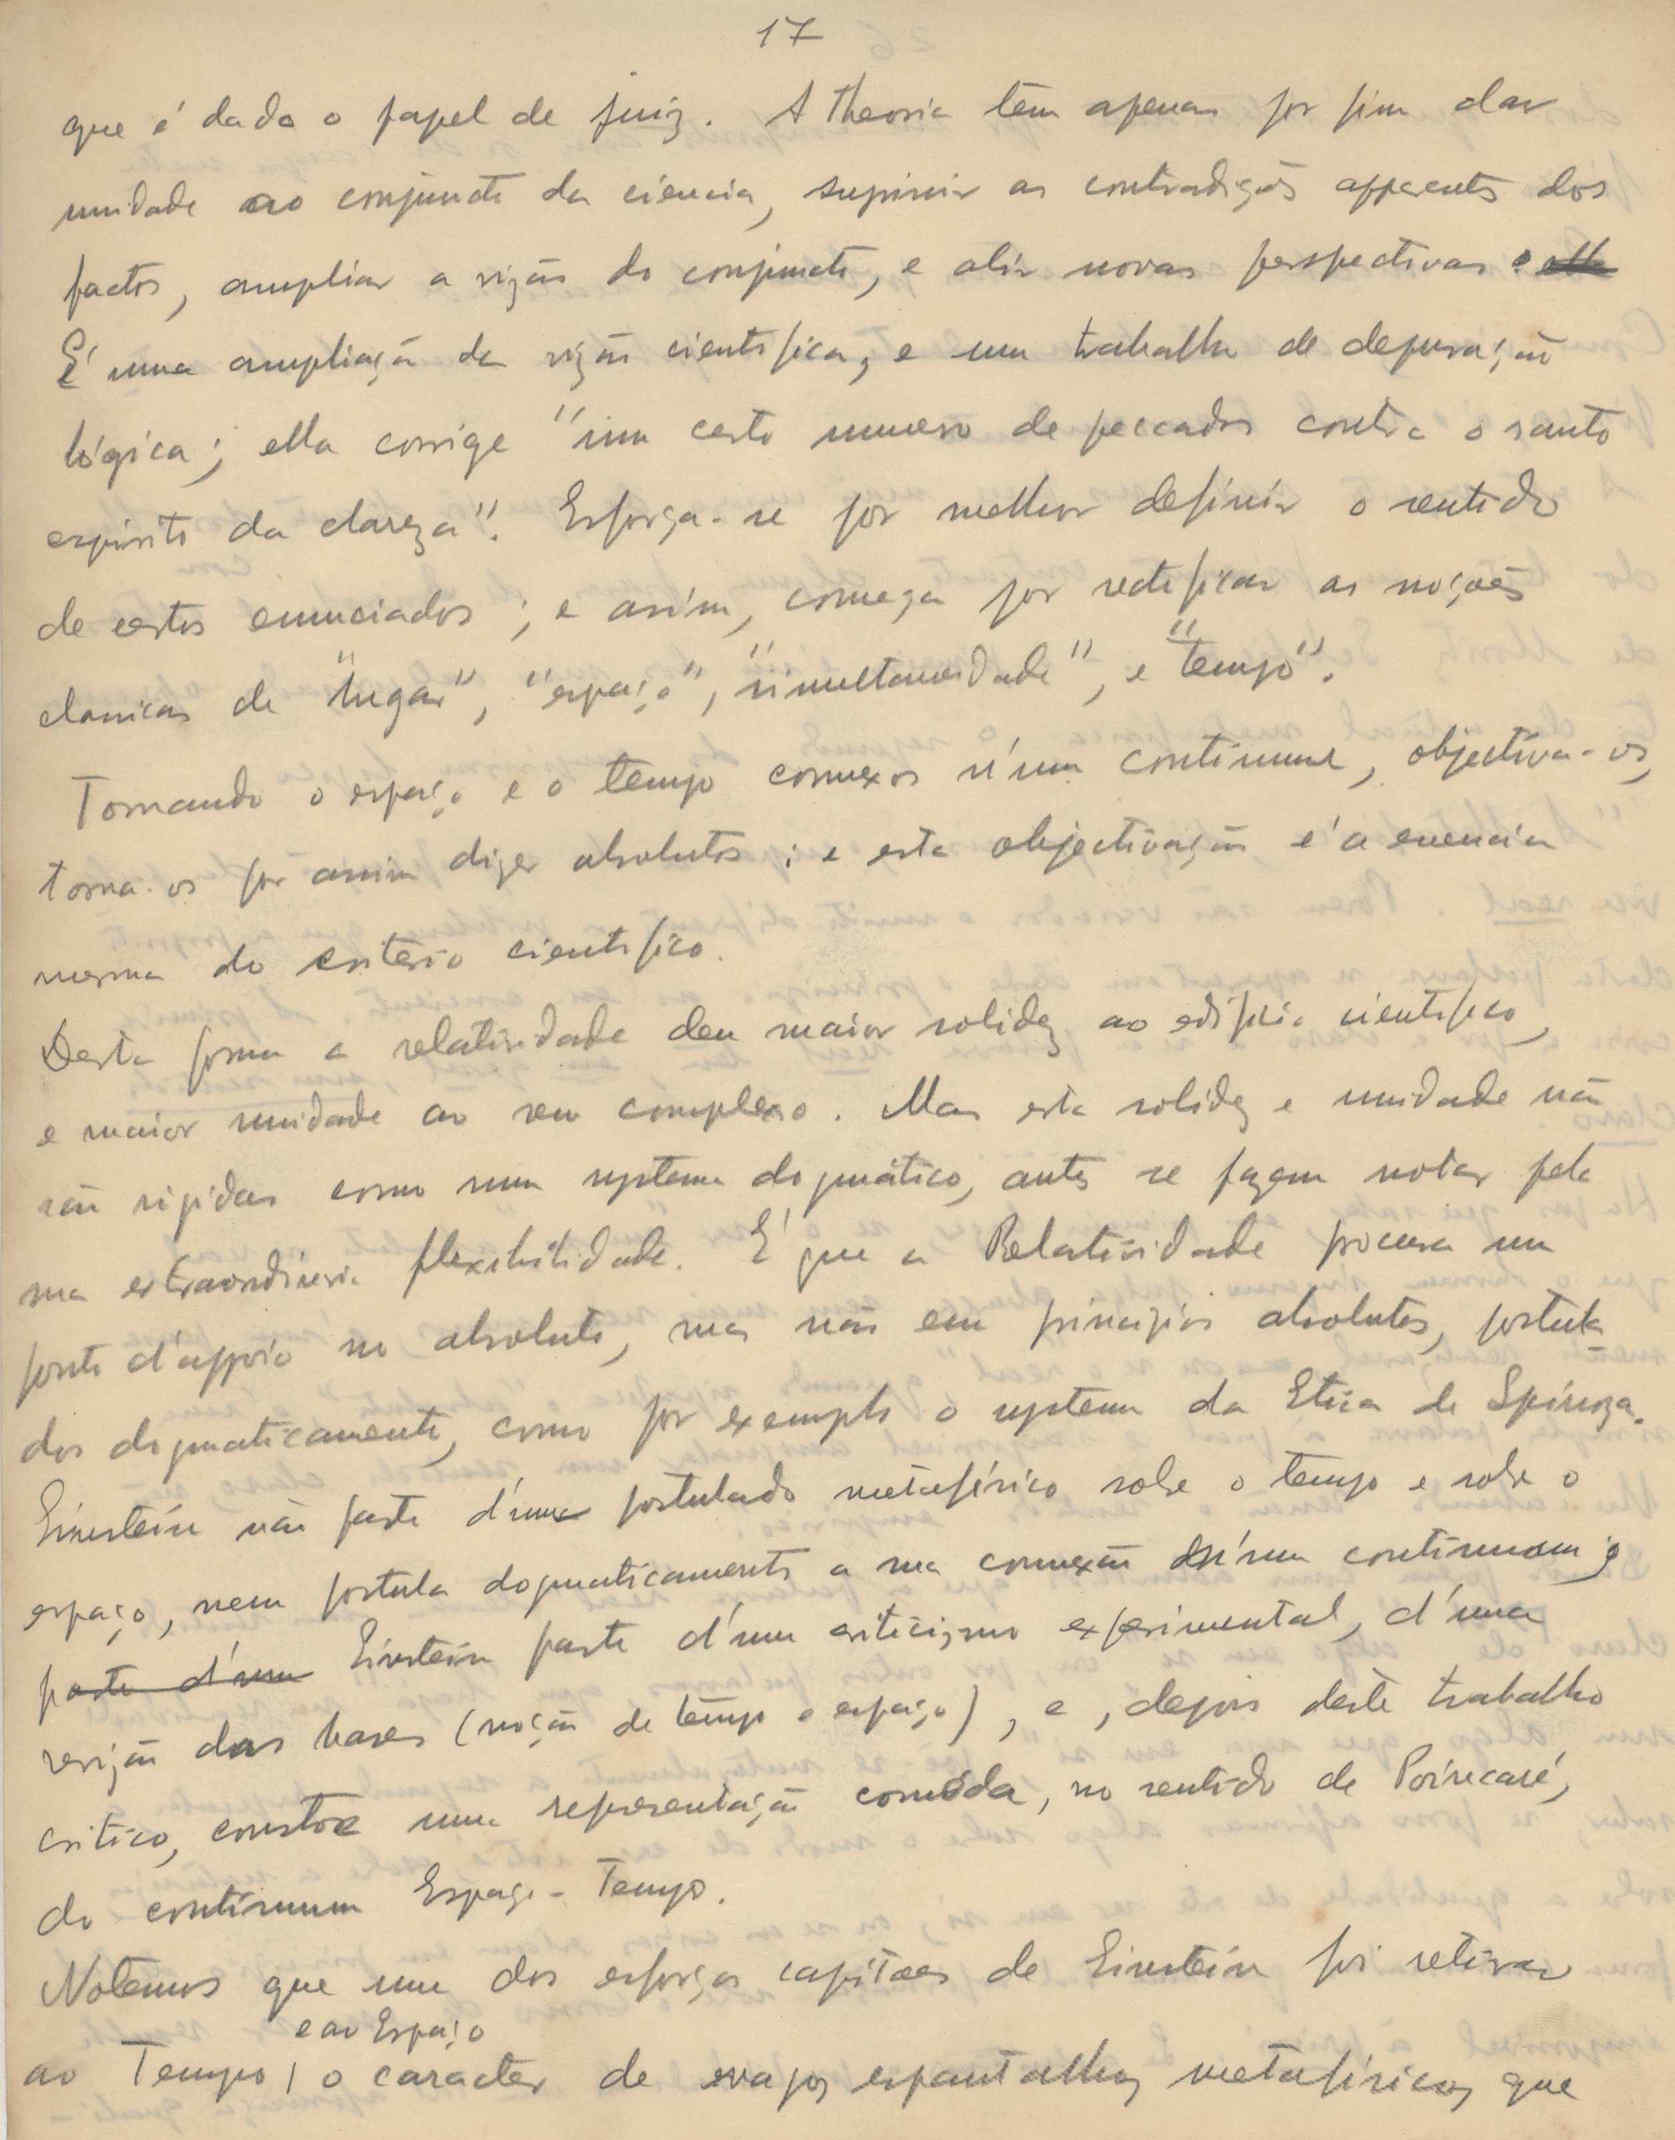 17
que é dado o papel de juiz. A Theoria tem apenas por fim dar
unidade ao conjuncto da ciencia, suprimir as contradições apparentes dos
factos, ampliar a visão do conjuncto, e abrir novas perspectivas.
É uma ampliação da visão cientifica, e um trabalho de depuração
lógica; ella corrige "um certo numero de peccados contra o santo
espirito da clareza". Esforça-se por melhor definir o sentido
de certos enunciados; e assim, começa por rectificar as noções
classicas de "lugar", "espaço", "simultaneidade", e "tempo".
Tornando o espaço e o tempo connexos n'um continuum, objectiva-os,
torna-os por assim dizer absolutos; e esta objectivação é a essencia
mesma do criterio cientifico.
Desta forma a relatividade deu maior solidez ao edificio cientifico,
e maior unidade ao seu complexo. Mas esta solidez e unidade não
são rigidas como num systema dogmático, antes se fazem notar pela
sua extraordinaria flexibilidade. É que a Relatividade procura um
ponto d'appoio no absoluto, mas não em principios absolutos, postula
dos dogmaticamente, como por exemplo o systema da Etica de Spinoza.
Einstein não parte d'um postulado metafísico sobre o tempo e sobre o
espaço, nem postula dogmaticamente a sua connexão n'um continuum;
parte d'um Einstein parte d'um criticismo experimental, d'uma
revisão das bases (noção de tempo e espaço), e, depois deste trabalho
critico, constroe uma representação comóda, no sentido de Poincaré,
do continuum Espaço-Tempo.
Notemos que um dos esforços capitaes de Einstein foi retirar
e ao Espaço
ao Tempo | o caracter de vagos espantalhos metafísicos que